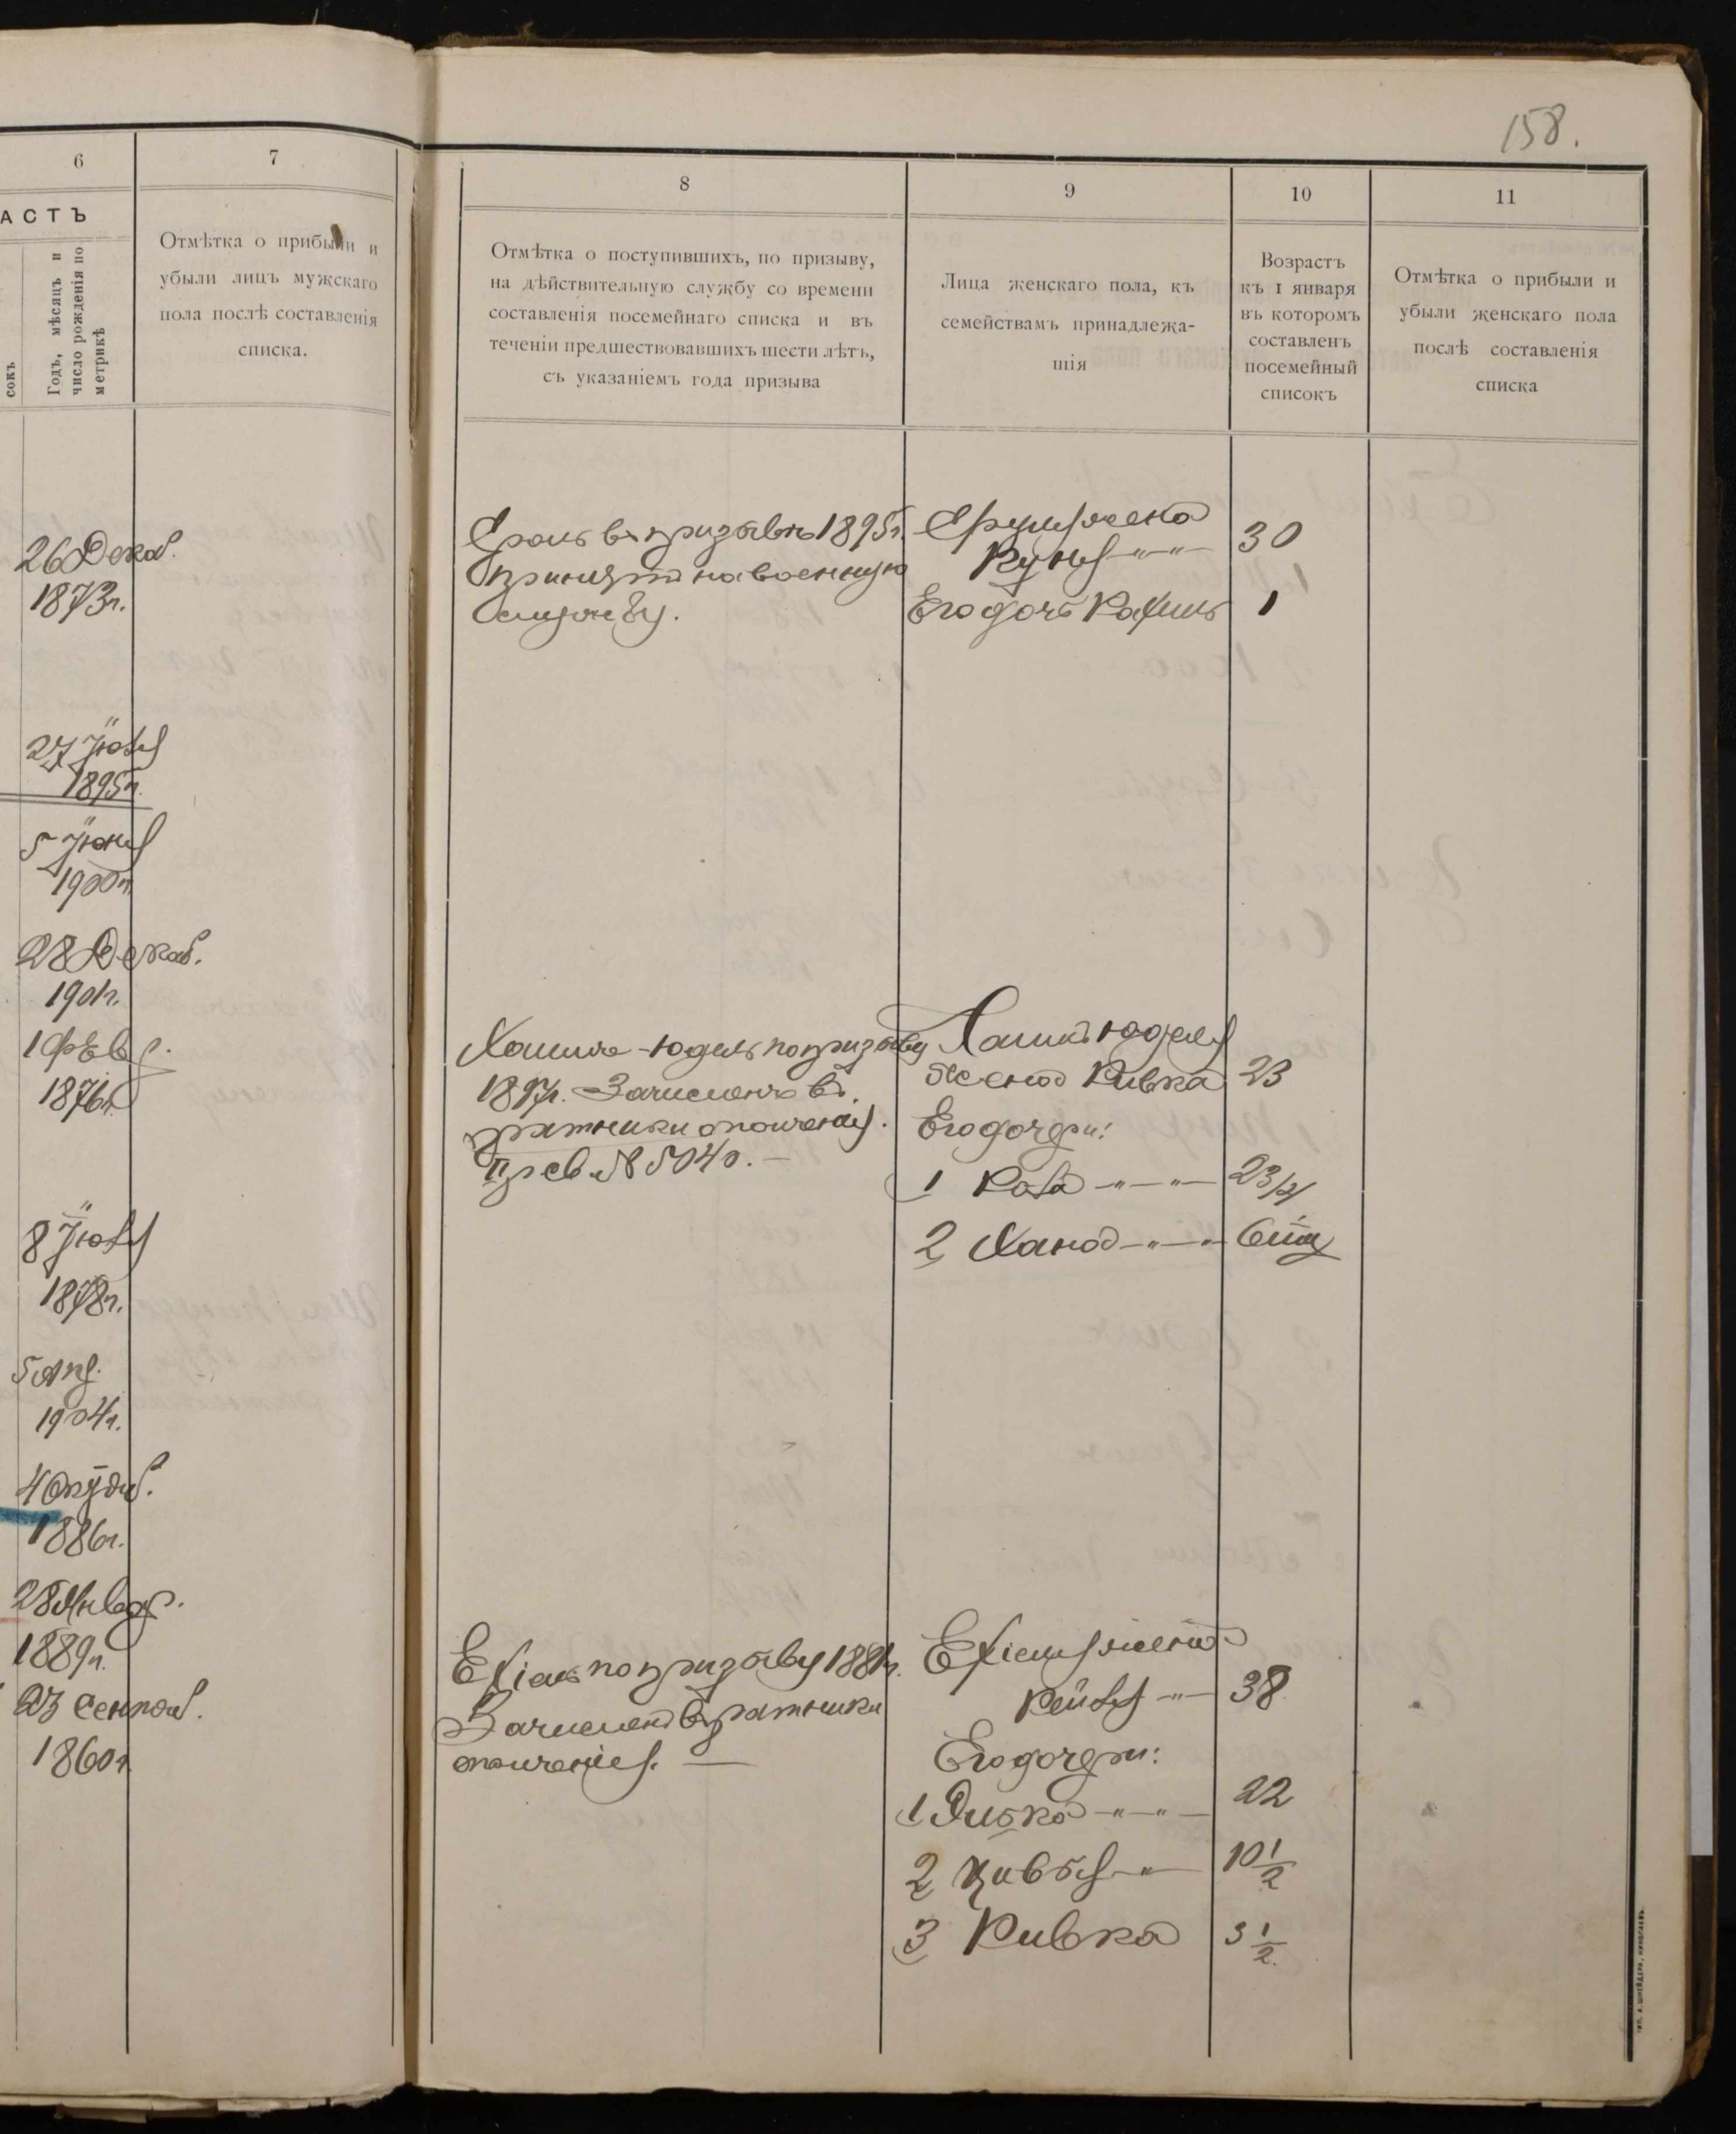 158.
6
7
АСТЪ
сокъ
Годъ, мѣсяцъ и
число рожденія по
метрикѣ
Отмѣтка о прибыли и
убыли лицъ мужскаго
пола послѣ составленія
списка.
26 Декаб.
1873г.
27 Іюля
1895г.
5 Іюня
1900г.
28 Декаб.
1901г.
1 Февр.
1876г.
8 Іюля
1878г.
5 Апр.
1904г.
4 Октяб.
1886г.
28 Январ.
1889г.
23 Сентяб.
1860г.
8
9
10
11
Отмѣтка о поступившихъ, по призыву,
на дѣйствительную службу со времени
составленія посемейнаго списка и въ
теченіи предшествовавшихъ шести лѣтъ,
съ указаніемъ года призыва
Лица женскаго пола, къ
семействамъ принадлежа-
щія
Возрастъ
къ 1 января
въ которомъ
составленъ
посемейный
списокъ
Отмѣтка о прибыли и
убыли женскаго пола
послѣ составленія
списка
въ призывъ 1895г.
принятъ на военную
службу.
жена
30
Его дочь Рахиль 1
Хаимъ-Юдель по призыву
1897г. Зачисленъ въ
ратники ополченія.
св. № 5040. —
Хаимъ Юделя
жена Ривка 23
Его дочери:
1
2 Хана —〃—〃—
Ехіель по призыву 1881г.
Зачисленъ въ ратники
ополченія. —
Ехіеля жена
Рейзя —〃— 38
Его дочери:
1 —〃—〃— 22
2 Цивья —〃— 10 1/2
3 Ривка 3 1/2